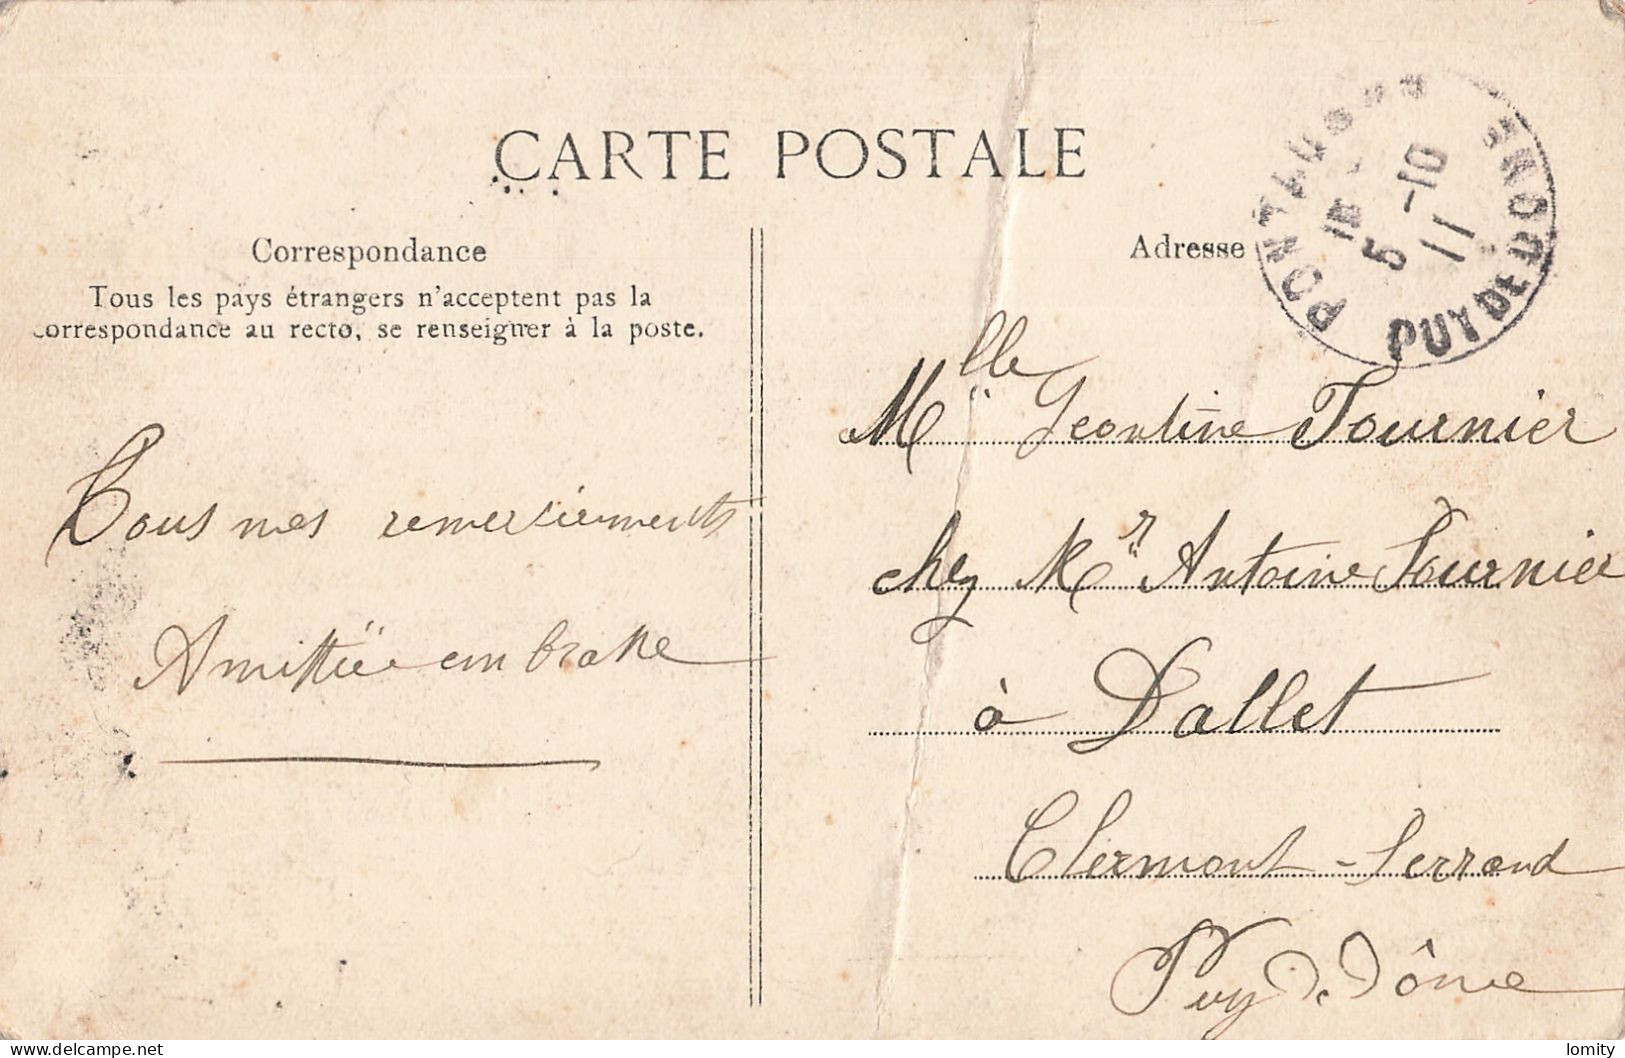 CARTE POSTALE
Correspondance
Tous les pays étrangers n'acceptent pas la
correspondance au recto, se renseigner à la poste.
Tous mes remerciements
Amittié
Adresse
PUY DE DOME
5 -10
11
Mlle Léontine Fournier
chez Mr Antoine Fournier
à Dallet
Clermont-Ferrand
Puy D. Dôme
www.delcampe.net
lomity